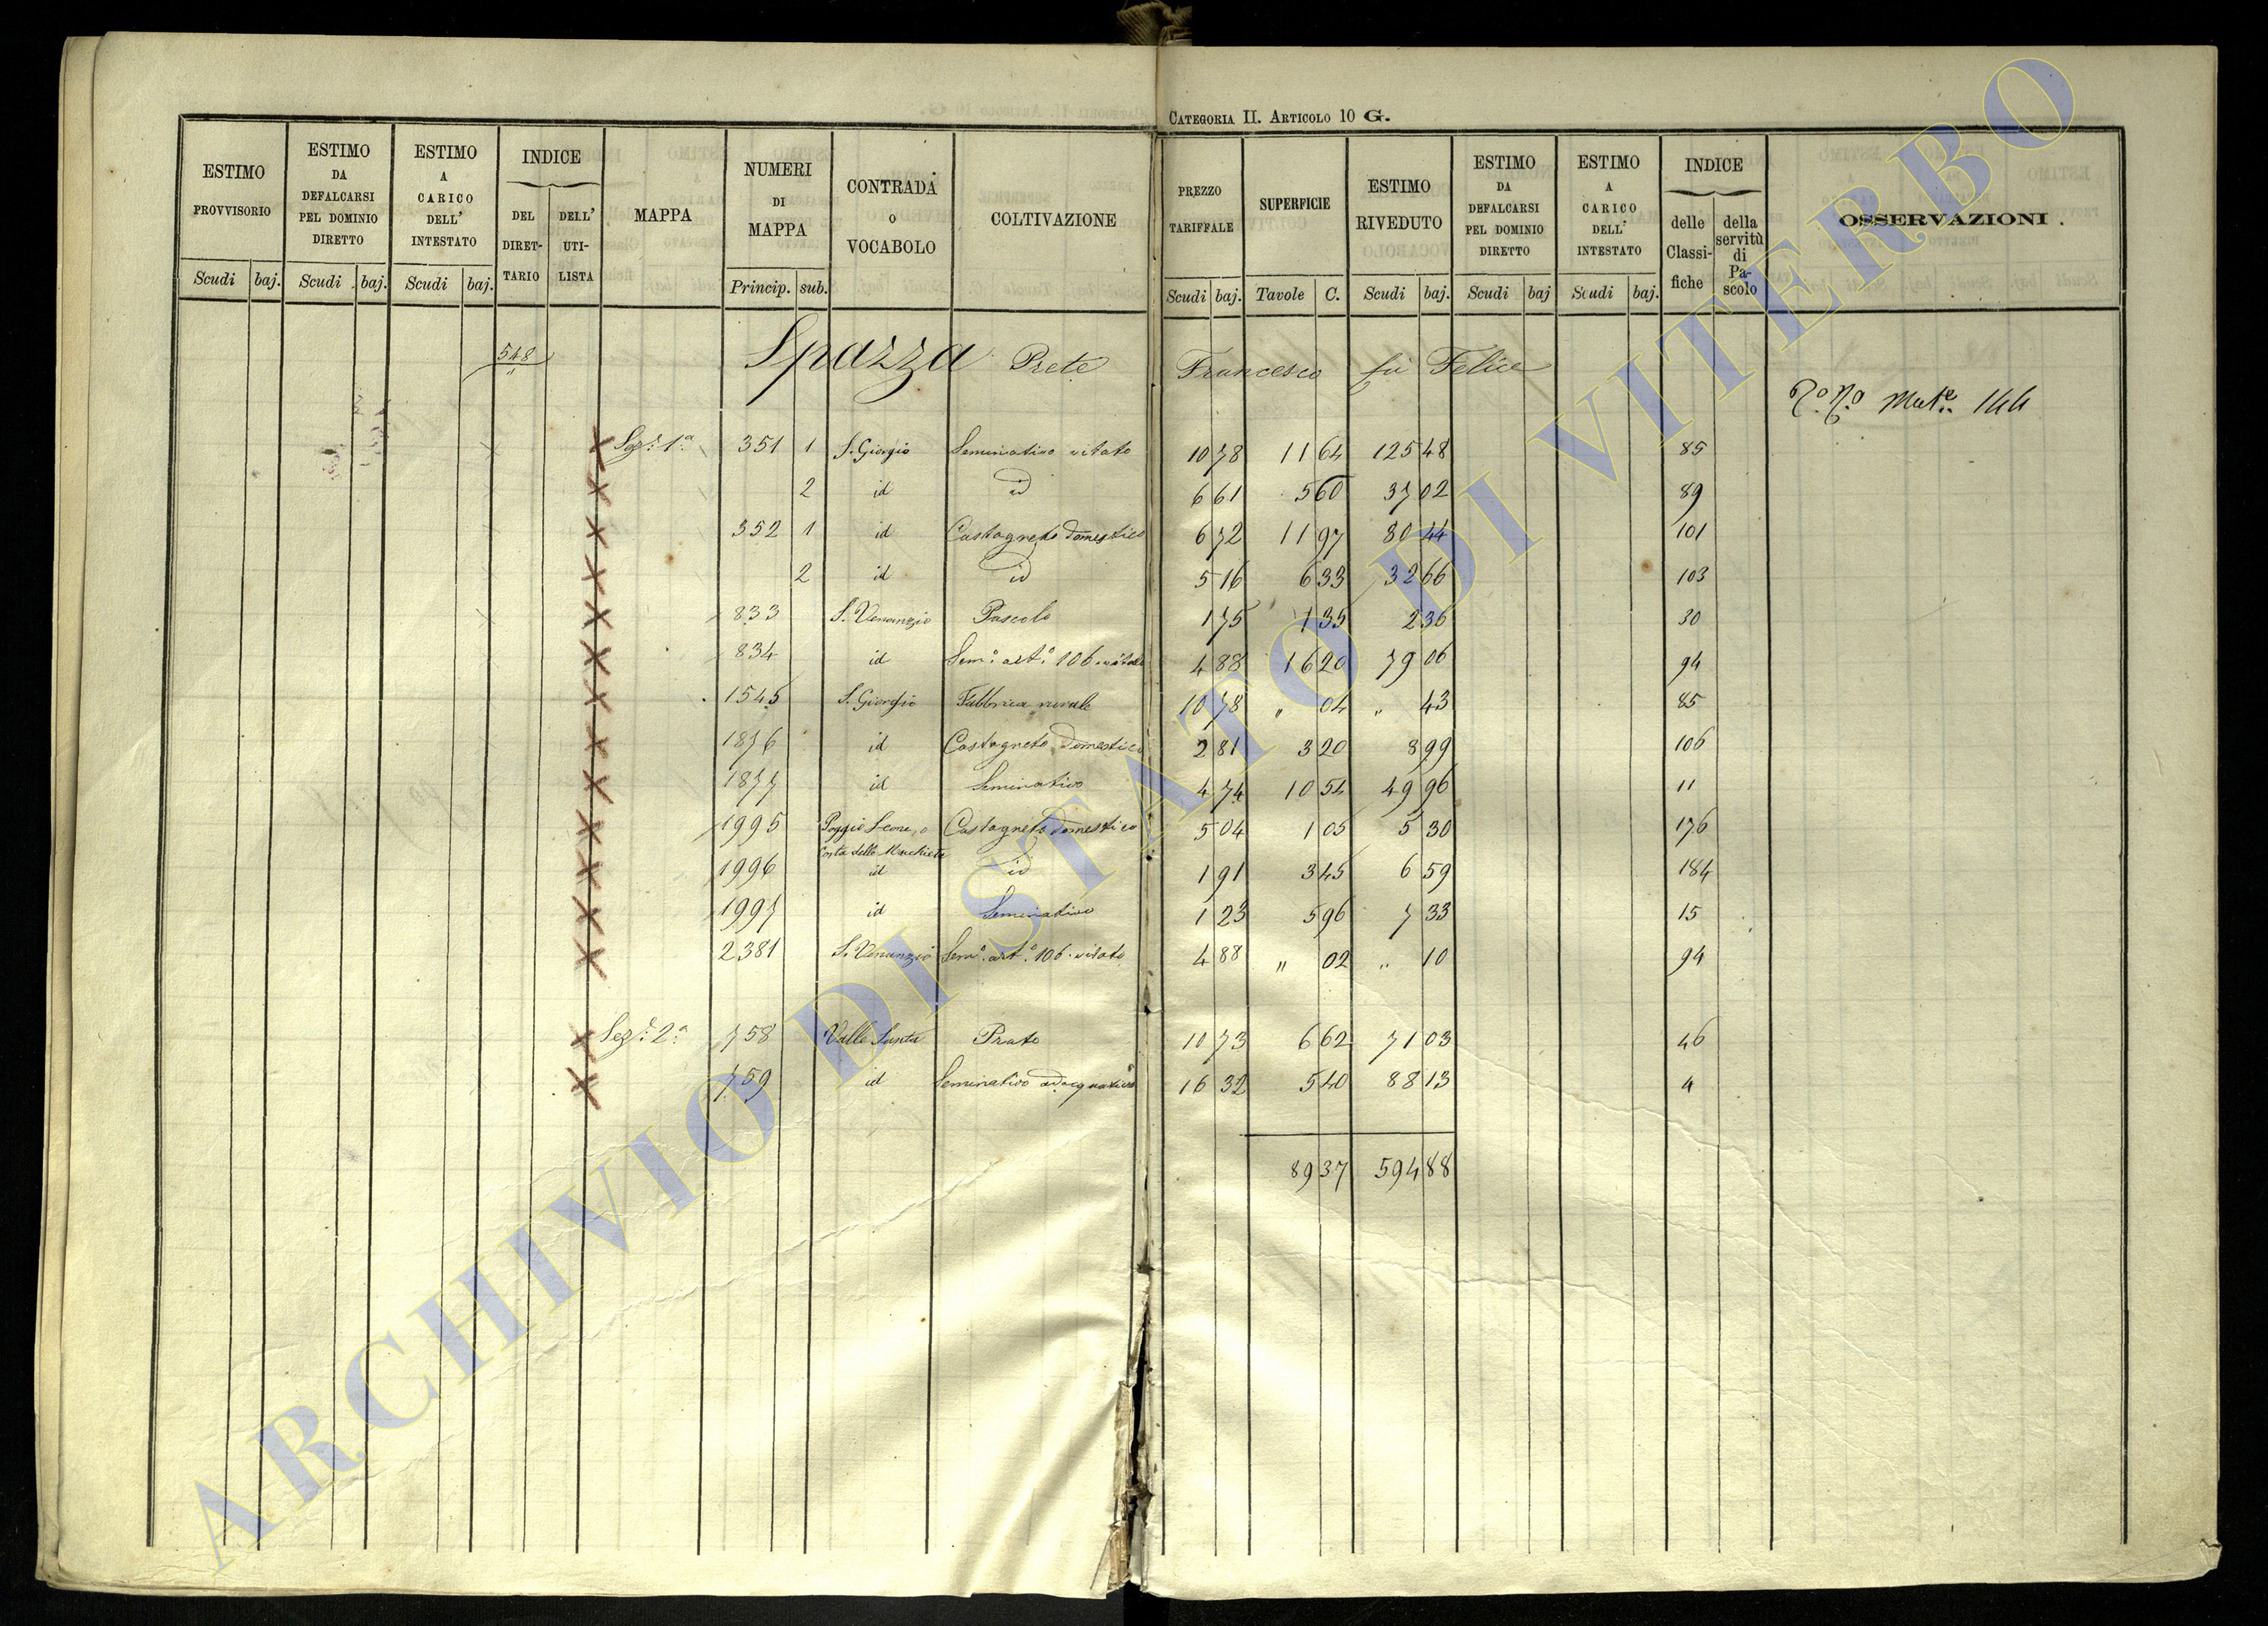 CATEGORIA II. ARTICOLO 10 G.
ESTIMO PROVVISORIO Scudi baj.
ESTIMO DA DEFALCARSI PEL DOMINIO DIRETTO Scudi baj.
ESTIMO A CARICO DELL' INTESTATO Scudi baj.
INDICE DEL DIRETTARIO DELL' UTILISTA
MAPPA
NUMERI DI MAPPA Princip. sub.
CONTRADA O VOCABOLO
COLTIVAZIONE
PREZZO TARIFFALE Scudi baj.
SUPERFICIE Tavole C.
ESTIMO RIVEDUTO Scudi baj.
ESTIMO DA DEFALCARSI PEL DOMINIO DIRETTO Scudi baj
ESTIMO A CARICO DELL' INTESTATO Scudi baj.
INDICE delle Classifiche della servitù di Pascolo
OSSERVAZIONI.
548 Spazza Prete Francesco fù Felice
Mut.e 144
Sez.e 1a 351 1 S. Giorgio Seminativo vitato 10 78 11 64 125 48 85
2 id id 6 61 5 60 37 02 89
352 1 id Castagneto domestico 6 72 11 97 80 44 101
2 id id 5 16 6 33 32 66 103
833 S. Venanzio Pascolo 1 75 1 35 2 36 30
834 id Sem.o art.o 106. vitato 4 88 16 20 79 06 94
1545 S. Giorgio Fabbrica rurale 10 78 " 04 " 43 85
1876 id Castagneto domestico 2 81 3 20 8 99 106
1877 id Seminativo 4 74 10 54 49 96 11
1995 Poggio Leone, o Castagneto domestico 5 04 1 05 5 30 176
Costa delle
1996 id id 1 91 3 45 6 59 184
1997 id Seminativo 1 23 5 96 7 33 15
2381 S. Venanzio Sem.o art.o 106. vitato 4 88 " 02 " 10 94
Sez.e 2a 758 Valle Santa Prato 10 73 6 62 71 03 46
759 id Seminativo adacquativo 16 32 5 40 88 13 4
89 37 594 88
ARCHIVIO DI STATO DI VITERBO